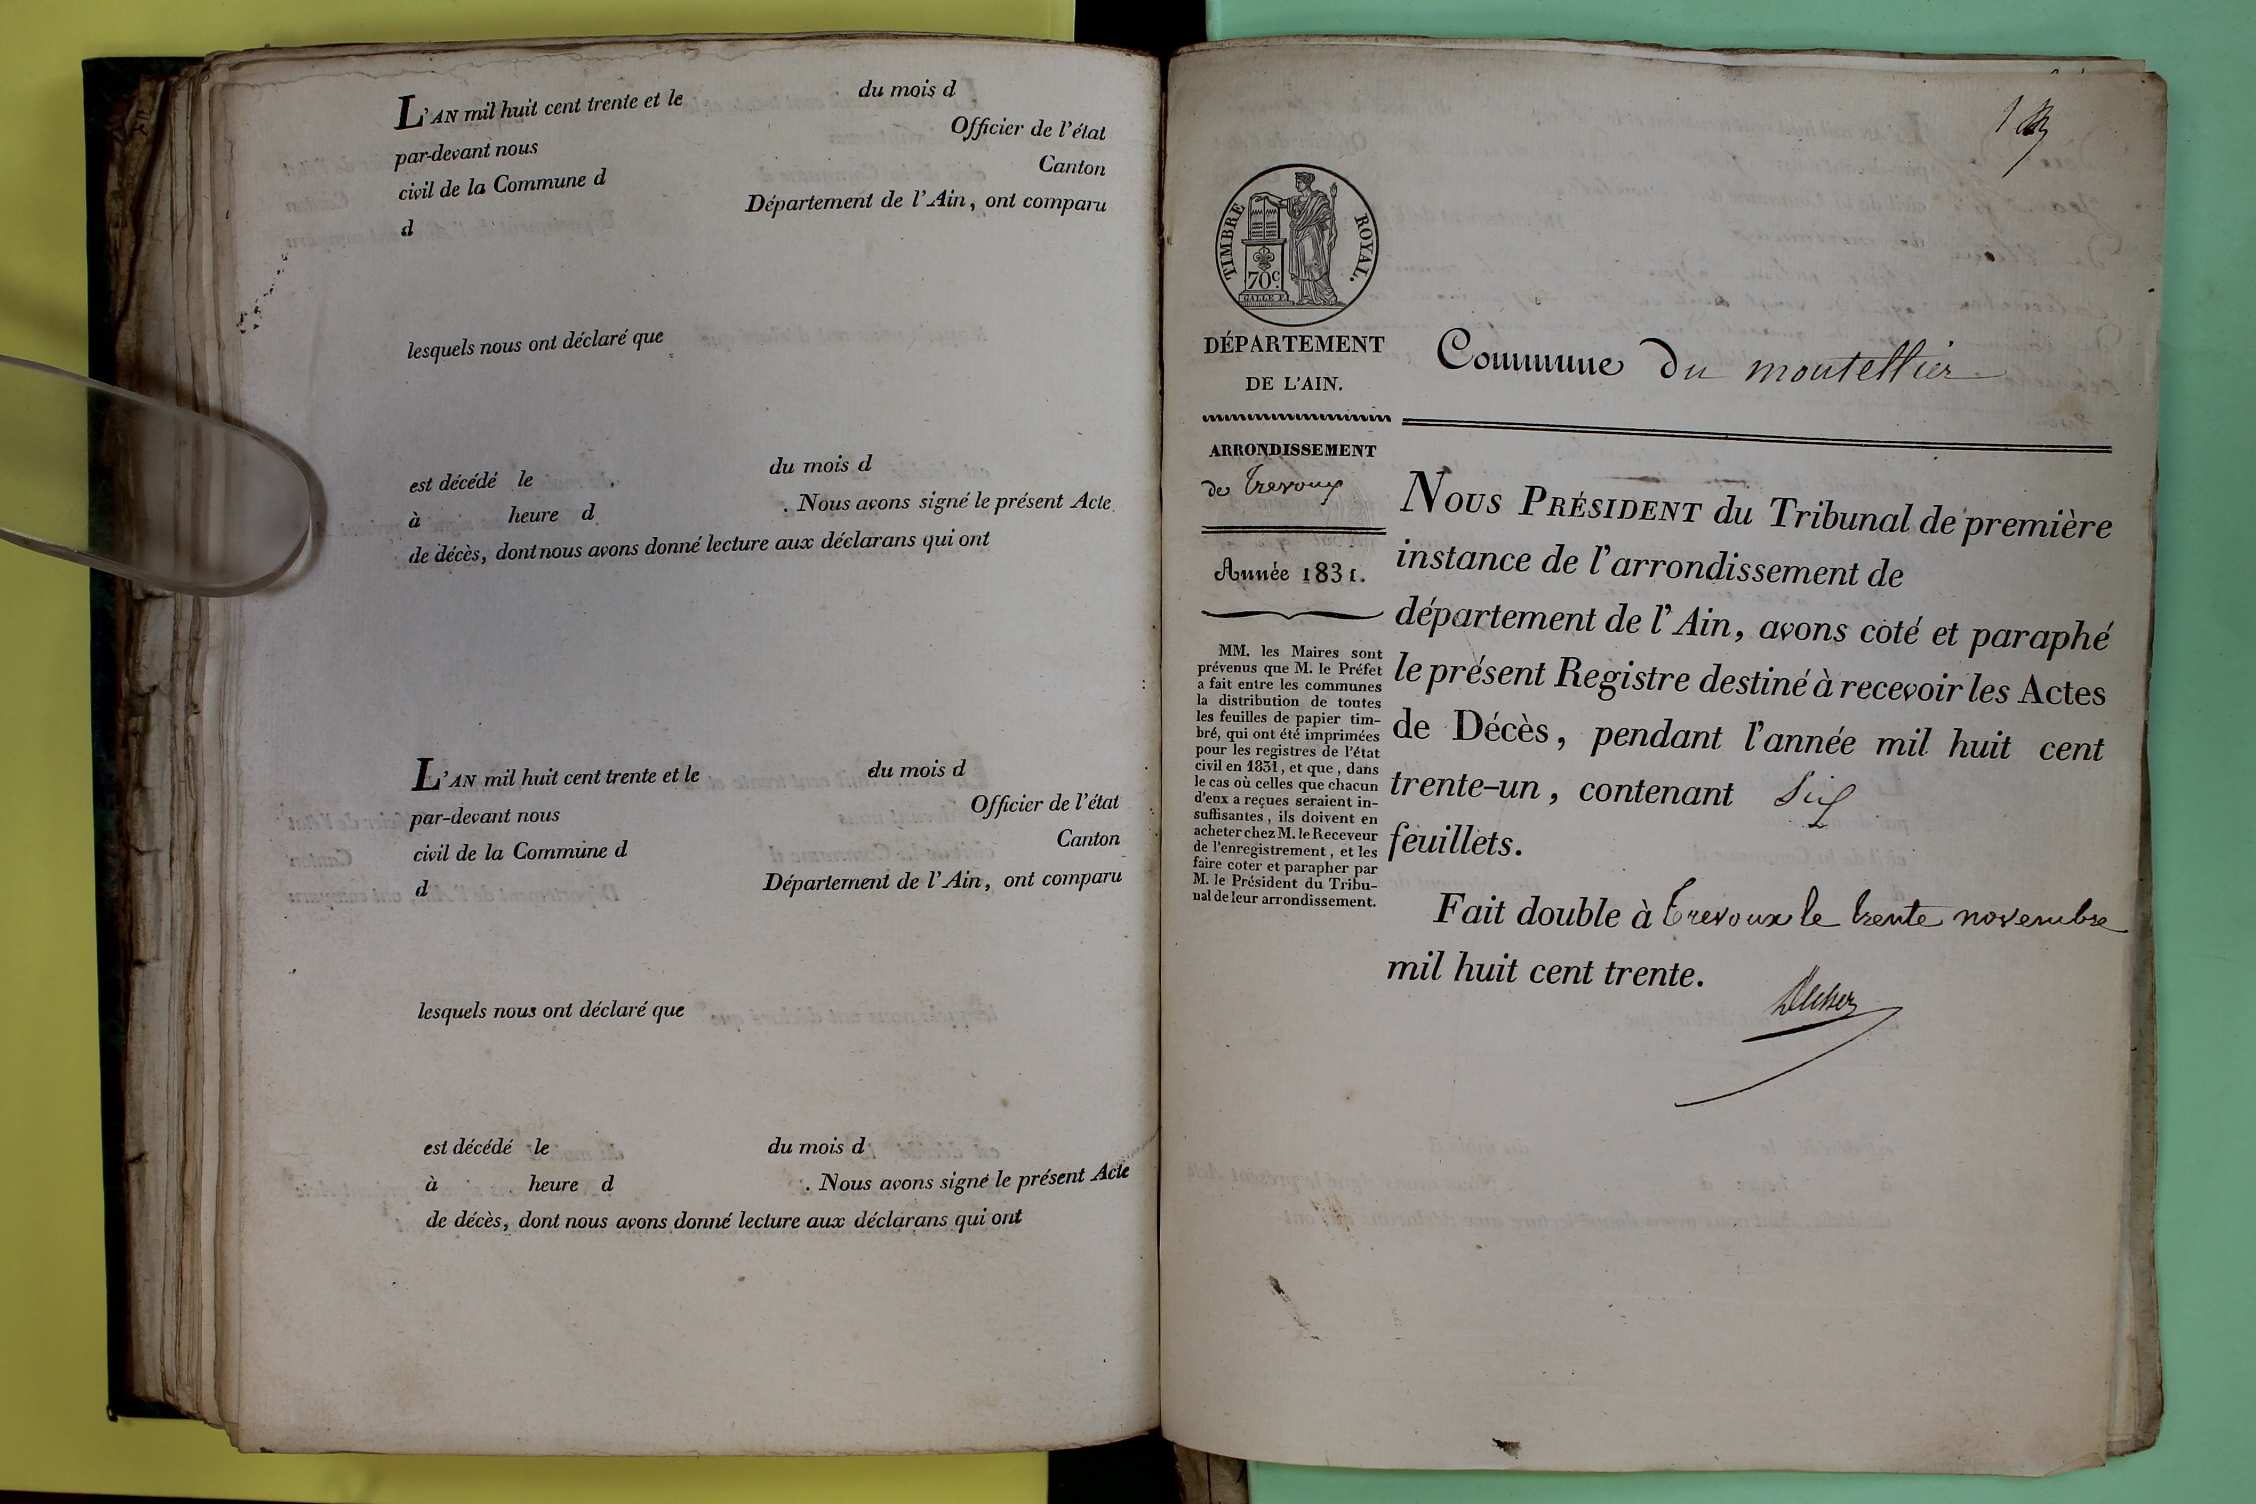 L'AN mil huit cent trente et le du mois d
par-devant nous Officier de l'état
civil de la Commune d Canton
d Département de l'Ain, ont comparu
lesquels nous ont déclaré que
est décédé le du mois d
à heure d . Nous avons signé le présent Acte
de décès, dont nous avons donné lecture aux déclarans qui ont
L'AN mil huit cent trente et le du mois d
par-devant nous Officier de l'état
civil de la Commune d Canton
d Département de l'Ain, ont comparu
lesquels nous ont déclaré que
est décédé le du mois d
à heure d . Nous avons signé le présent Acte
de décès, dont nous avons donné lecture aux déclarans qui ont
1
TIMBRE ROYAL.
70c.
DÉPARTEMENT
DE L'AIN.
ARRONDISSEMENT
de Trevoux
Année 1831.
MM. les Maires sont
prévenus que M. le Préfet
a fait entre les communes
la distribution de toutes
les feuilles de papier tim-
bré, qui ont été imprimées
pour les registres de l'état
civil en 1831, et que, dans
le cas où celles que chacun
d'eux a reçues seraient in-
suffisantes, ils doivent en
acheter chez M. le Receveur
de l'enregistrement, et les
faire coter et parapher par
M. le Président du Tribu-
nal de leur arrondissement.
Commune du montellier
NOUS PRÉSIDENT du Tribunal de première
instance de l'arrondissement de
département de l'Ain, avons coté et paraphé
le présent Registre destiné à recevoir les Actes
de Décès, pendant l'année mil huit cent
trente-un, contenant Six
feuillets.
Fait double à Trevoux le trente novembre
mil huit cent trente.